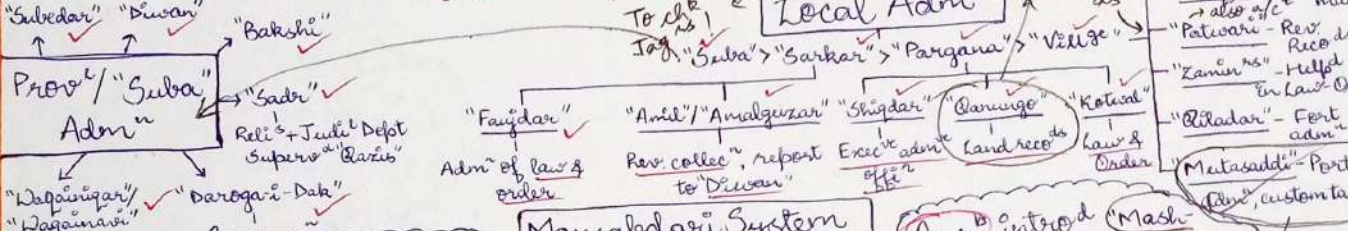 "Subedar" "Diwan"
"Bakshi"
Prov^l / "Suba"
Adm^n
"Sadr"
Reli^s + Judi^l Dept
Superv^d "Qazis"
"Waqainigar"/
"Waqainavis"
"Daroga-i-Dak"
To chk
Jag^is!
Local Adm^n
"Suba" > "Sarkar" > "Pargana" > "Village"
"Faujdar"
Adm^n of law &
order
"Amil"/"Amalguzar"
Rev. collec^n, report
to "Diwan"
"Shiqdar"
Exec^ve adm^ve
"Qanungo"
Land reco^ds
"Kotwal"
Law &
Order
→ also a/c^t
"Patwari" - Rev.
Reco^d
"Zamin^rs" - Helpd
in Law-O
"Qiladar" - Fort
adm^n
"Mutasaddi" - Port
Adm^n, custom ta
Mansabdari System
introd "Mash-